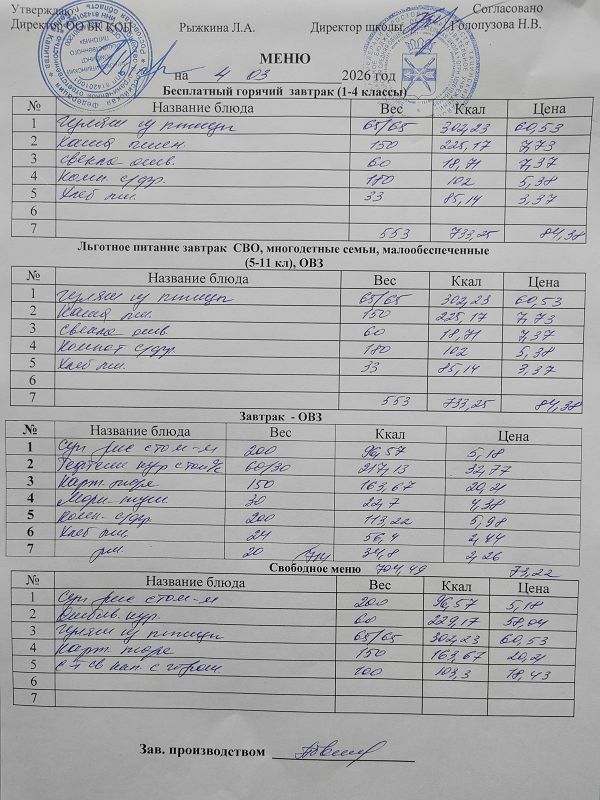 Утверждаю Согласовано
Директор ОО БК КОЦ Рыжкина Л.А. Директор школы Голопузова Н.В.
МЕНЮ
на 4 03 2026 год
Бесплатный горячий завтрак (1-4 классы)
№ Название блюда Вес Ккал Цена
1 Гуляш из птицы 65/65 302,23 60,53
2 Каша пшен. 150 225,17 7,73
3 Свекла отв. 60 18,71 7,37
4 Комп. с/фр. 180 102 5,38
5 Хлеб пш. 33 85,14 3,37
6
7 553 733,25 84,38
Льготное питание завтрак СВО, многодетные семьи, малообеспеченные
(5-11 кл), ОВЗ
№ Название блюда Вес Ккал Цена
1 Гуляш из птицы 65/65 302,23 60,53
2 Каша пш. 150 225,17 7,73
3 Свекла отв 60 18,71 7,37
4 Компот с/фр. 180 102 5,38
5 Хлеб пш. 33 85,14 3,37
6
7 553 733,25 84,38
Завтрак - ОВЗ
№ Название блюда Вес Ккал Цена
1 Суп рис с том-м 200 96,57 5,18
2 Тефтели кур с том 60/30 217,13 32,77
3 Карт. пюре 150 163,67 20,21
4 30 22,7 4,38
5 Комп. с/фр. 200 113,22 5,98
6 Хлеб пш. 24 56,4 2,44
7 рж. 20 34,8 2,26
Свободное меню 704,49 73,22
№ Название блюда Вес Ккал Цена
1 Суп рис с том-м 200 96,57 5,18
2 кур. 60 229,17 38,04
3 Гуляш из птицы 65/65 302,23 60,53
4 Карт. пюре 150 163,67 20,21
5 с горош. 100 103,3 18,43
6
7
Зав. производством